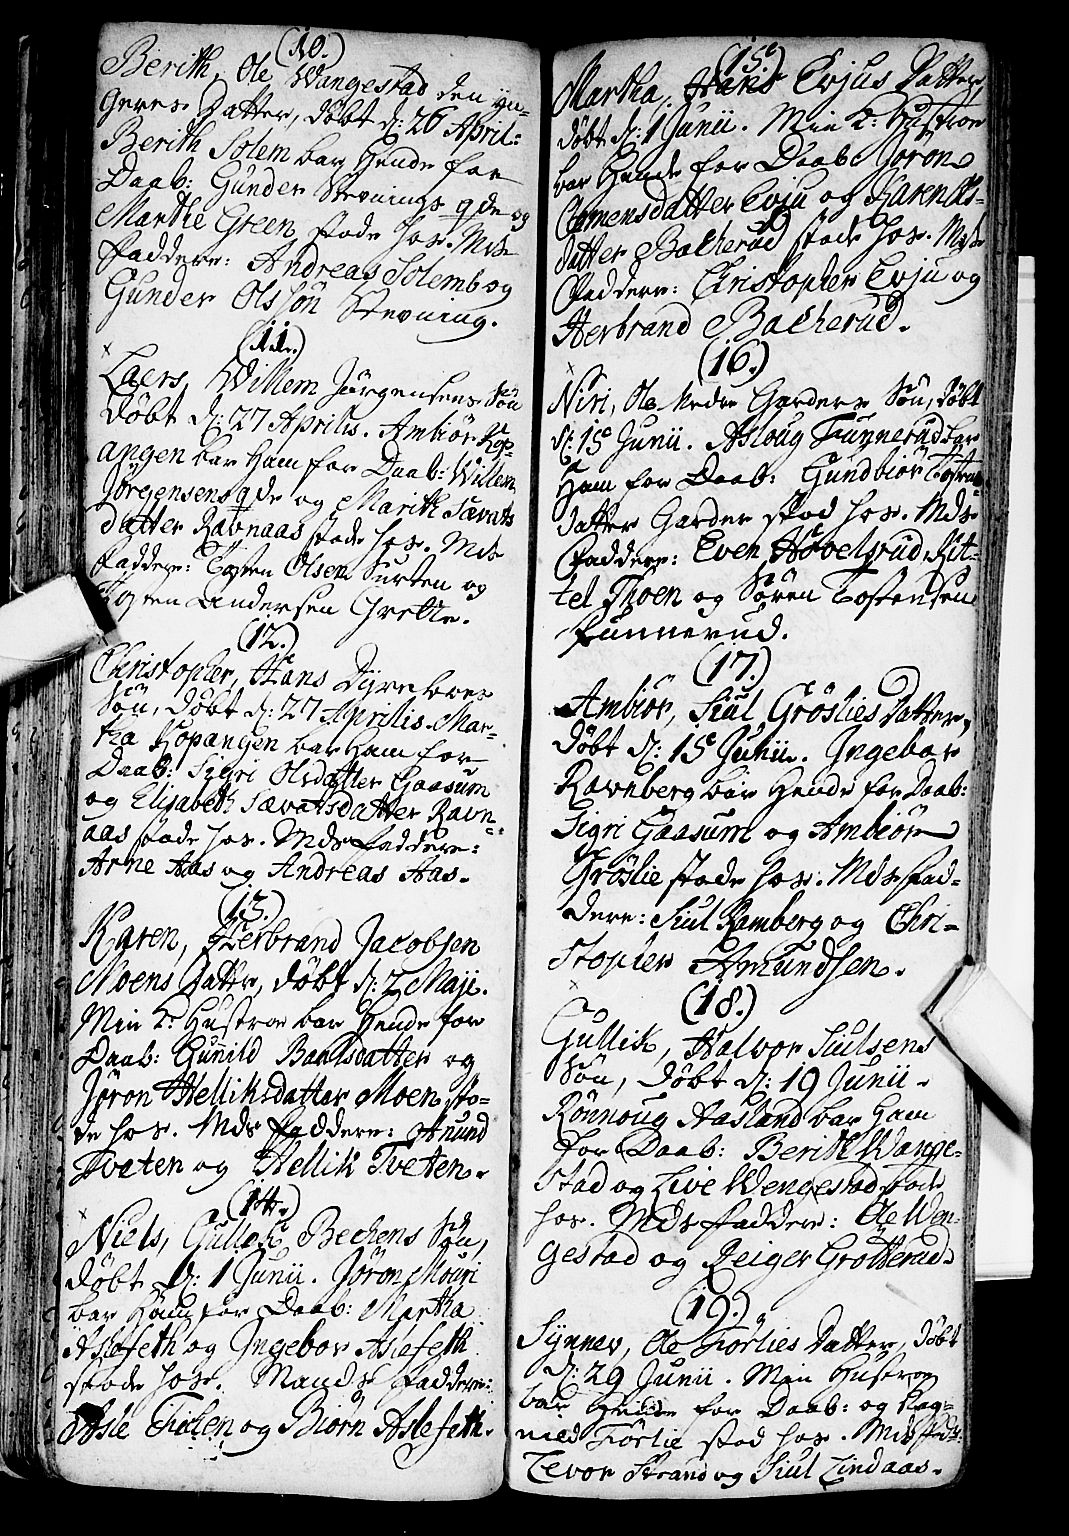 (10.)
Berith, Ole Wangestad den Yn-
geres Datter, döbt d: 26 April:
Berith Solem bar Hende for
Daab: Gunder Stevnings qde og
Marthe Green stode hos. Mds
faddere: Andreas Solemb og
Gunder Olssön Stevning.
(11.)
Laers, Willem Jörgensens Sön
döbt d: 27 Aprilis. Ambiör Kop-
angen bar Ham for Daab: Willem
Jörgensens qde og Marith Sævats
datter Ravnaas stode hos. Mds
faddere: Tosten Olsen Surten og
Tosten Andersen Grette.
(12.)
Christopher, Hans Dyreboes
Sön, döbt d: 27 Aprilis. Mar-
tha Kopangen bar Ham for
Daab: Sigri Olsdatter Gaasum
og Elisabeth Sævatsdatter Ravn-
aas stode hos. Mds faddere:
Arne Aas og Andreas Aas.
(13.)
Karen, Herbrand Jacobsen
Moens Datter, döbt d: 2 Maji.
Min K: Hustroe bar Hende for
Daab: Gunild Baalsdatter og
Jöron Helliksdatter Moen sto-
de hos. Mds faddere: Anund
Tveten og Hellik Tveten.
(14.)
Niels, Gullek Beckens Sön,
döbt d: 1 Junii. Jöron Mouri
bar Ham for Daab: Martha
Aslefeth og Ingebor Aslefeth
stode hos. Mands faddere:
Asle Fichen og Biörn Aslefeth.
(15.)
Martha, Hans Evjus Datter,
döbt d: 1 Junii. Min K: Hustroe
bar Hende for Daab: Jöron
Clemensdatter Evju og Karen Ols-
datter Bakerud stode hos. Mds
Faddere: Christopher Evju og
Herbrand Bakerud.
(16.)
Niri, Ole Nedre Garders Sön, döbt
d: 15 Junii. Asloug Funnerud bar
Ham for Daab: Gundbiör
datter Garder stod hos. Mds
Faddere: Even Hövelsrud, Kit-
tel Thoen og Sören Tostensen
Funnerud.
(17.)
Ambiör, Siul Gröslies Datter,
döbt d: 15 Junii. Ingebor
Ravnberg bar Hende for Daab:
Sigri Gaasum og Ambiör
Gröslie stode hos. Mds fad-
dere: Siul Ramberg og Chri-
stopher Amundsen.
(18.)
Gullik, Halvor Siulsens
Sön, döbt d: 19 Junii.
Rönnoug Aasland bar Ham
for Daab: Berith Wange-
stad og Live Wengestad stode
hos. Mds faddere: Ole Wen-
gestad og Reiger Grotterud.
(19.)
Synnev, Ole Förlies Datter, döbt
d: 29 Junii. Min Hustroe
bar Hende for Daab: og Rag-
nild Förlie stod hos. Mds fdr:
Tevor Strand og Siul Lindaas.